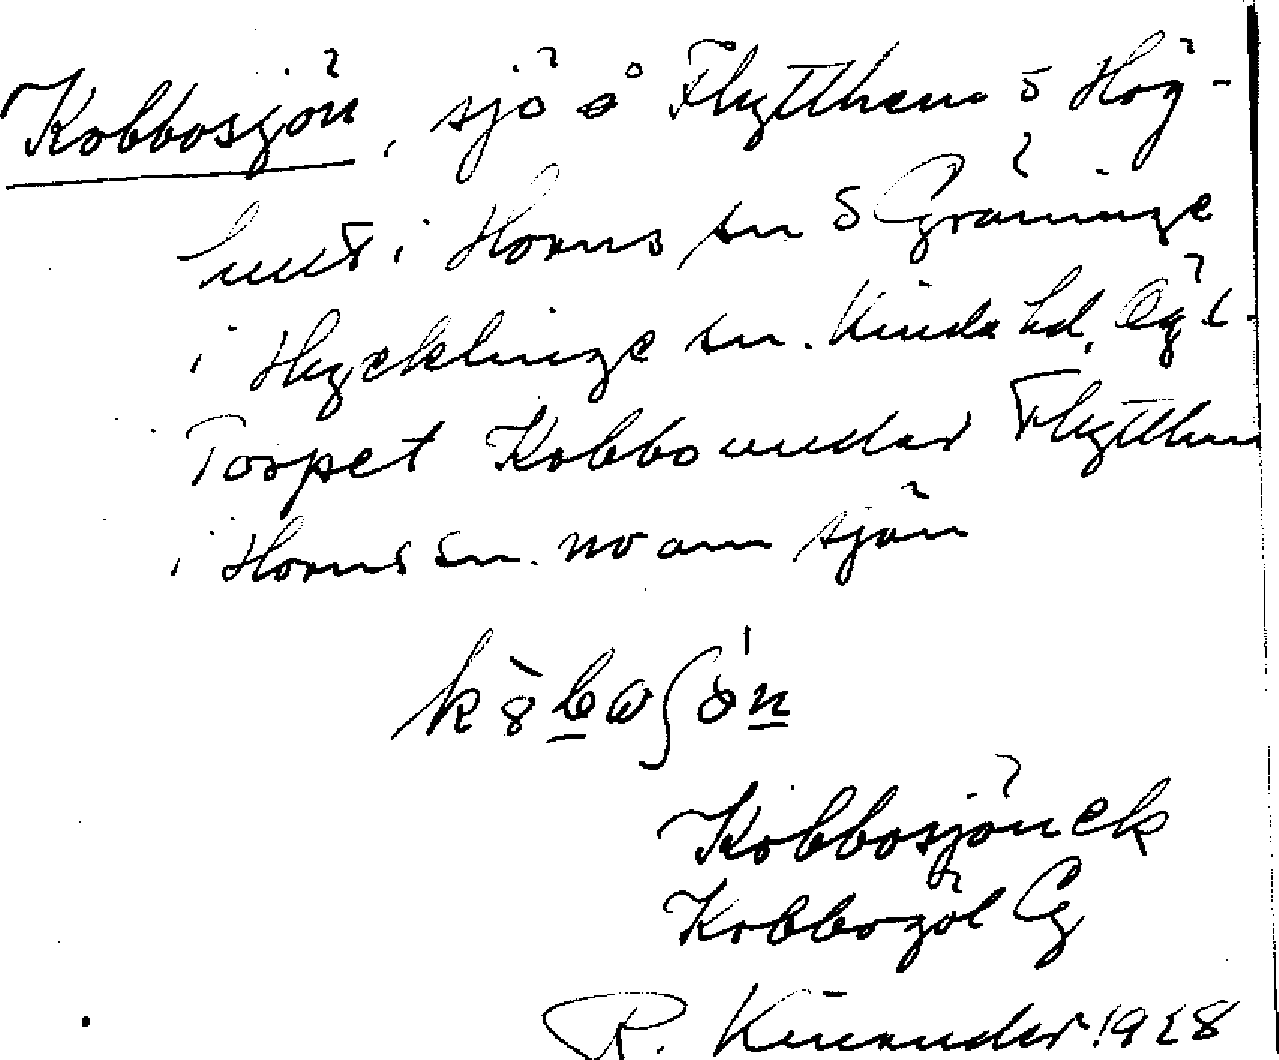 Kobbosjön, sjö å Flytthem s Hög-
lund i Horns sn S Gräninge
i Hycklinge sn. Kinda hd, Ögl.
Torpet Kobbo under Flytthem
i Horns sn. no om sjön
Kobbosjön ek
Kobbogöl Cg
R. Kinander 1928